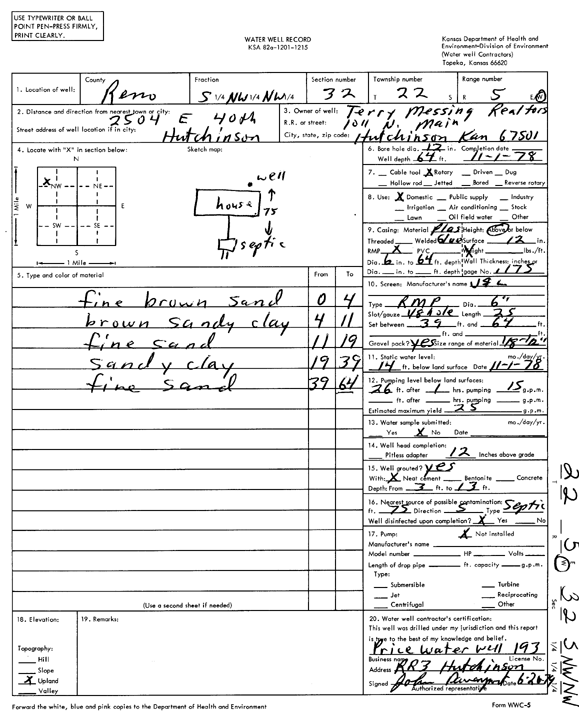 USE TYPEWRITER OR BALL
POINT PEN-PRESS FIRMLY,
PRINT CLEARLY.
WATER WELL RECORD
KSA 82a-1201-1215
Kansas Department of Health and
Environment-Division of Environment
(Water well Contractors)
Topeka, Kansas 66620
1. Location of well:
County
Reno
Fraction
S 1/4 NW 1/4 NW 1/4
Section number
32
Township number
T 22 S
Range number
R 5 E/W
2. Distance and direction from nearest town or city:
2504 E 40th
Street address of well location if in city:
Hutchinson
3. Owner of well: Terry Messing Realtors
R.R. or street: 1011 N. Main
City, state, zip code: Hutchinson Kan 67501
4. Locate with "X" in section below:
Sketch map:
N
X
NW
NE
W
E
SW
SE
S
1 Mile
1 Mile
well
house
75
septic
6. Bore hole dia. 12 in. Completion date
Well depth 64 ft. 11-1-78
7. Cable tool X Rotary Driven Dug
Hollow rod Jetted Bored Reverse rotary
8. Use: X Domestic Public supply Industry
Irrigation Air conditioning Stock
Lawn Oil field water Other
9. Casing: Material Plas Height: Above or below
Threaded Welded Glue Surface 12 in.
RMP X PVC Weight lbs./ft.
Dia. 6 in. to 64 ft. depth Wall Thickness: inches or
Dia. in. to ft. depth gage No. .175
5. Type and color of material
From
To
fine brown sand 0 4
brown sandy clay 4 11
fine sand 11 19
sandy clay 19 39
fine sand 39 64
(Use a second sheet if needed)
10. Screen: Manufacturer's name
Type RMP Dia. 6"
Slot/gauze 48 hole Length 25
Set between 39 ft. and 64 ft.
ft. and ft.
Gravel pack? yes Size range of material 1/8-1/2"
11. Static water level: mo./day/yr.
14 ft. below land surface Date 11-1-78
12. Pumping level below land surfaces:
26 ft. after 1 hrs. pumping 15 g.p.m.
ft. after hrs. pumping g.p.m.
Estimated maximum yield 25 g.p.m.
13. Water sample submitted: mo./day/yr.
Yes X No Date
14. Well head completion:
Pitless adapter 12 Inches above grade
15. Well grouted? yes
With: X Neat cement Bentonite Concrete
Depth: From 3 ft. to 13 ft.
16. Nearest source of possible contamination:
ft. 75 Direction S Type Septic
Well disinfected upon completion? X Yes No
17. Pump: X Not installed
Manufacturer's name
Model number HP Volts
Length of drop pipe ft. capacity g.p.m.
Type:
Submersible Turbine
Jet Reciprocating
Centrifugal Other
18. Elevation:
19. Remarks:
Topography:
Hill
Slope
X Upland
Valley
20. Water well contractor's certification:
This well was drilled under my jurisdiction and this report
is true to the best of my knowledge and belief.
Price water well 193
Business name License No.
Address RR3 Hutchinson
Signed John Date 6-26-79
Authorized representative
Forward the white, blue and pink copies to the Department of Health and Environment
Form WWC-5
T 22 R 5 W Sec 32 S 1/4 NW 1/4 NW 1/4